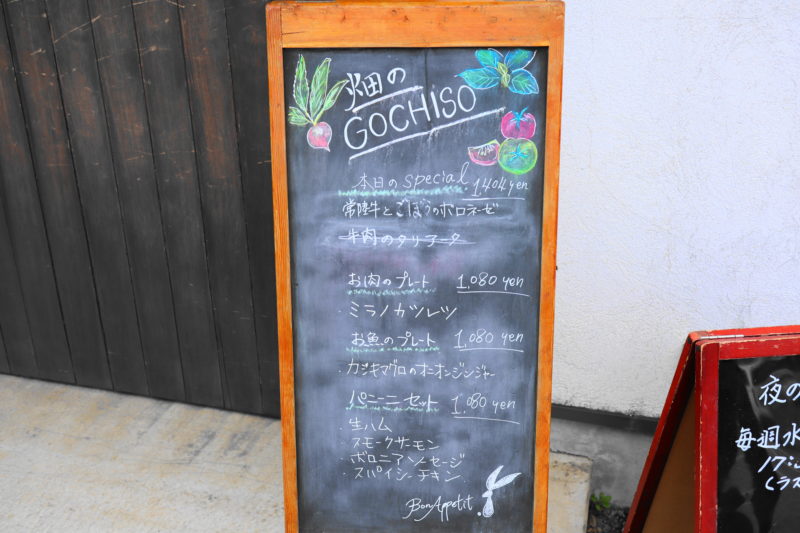 畑の
GOCHISO
本日のspecial 1,404yen
常陸牛とごぼうのボロネーゼ
牛肉のタリアータ
お肉のプレート 1.080 yen
・ミラノカツレツ
お魚のプレート 1.080 yen
・カジキマグロのオニオンジンジャー
パニーニセット 1.080 yen
・生ハム
・スモークサーモン
・ボロニアソーセージ
・スパイシーチキン
Bon Appetit.
夜の
毎週水
17:
(ラス